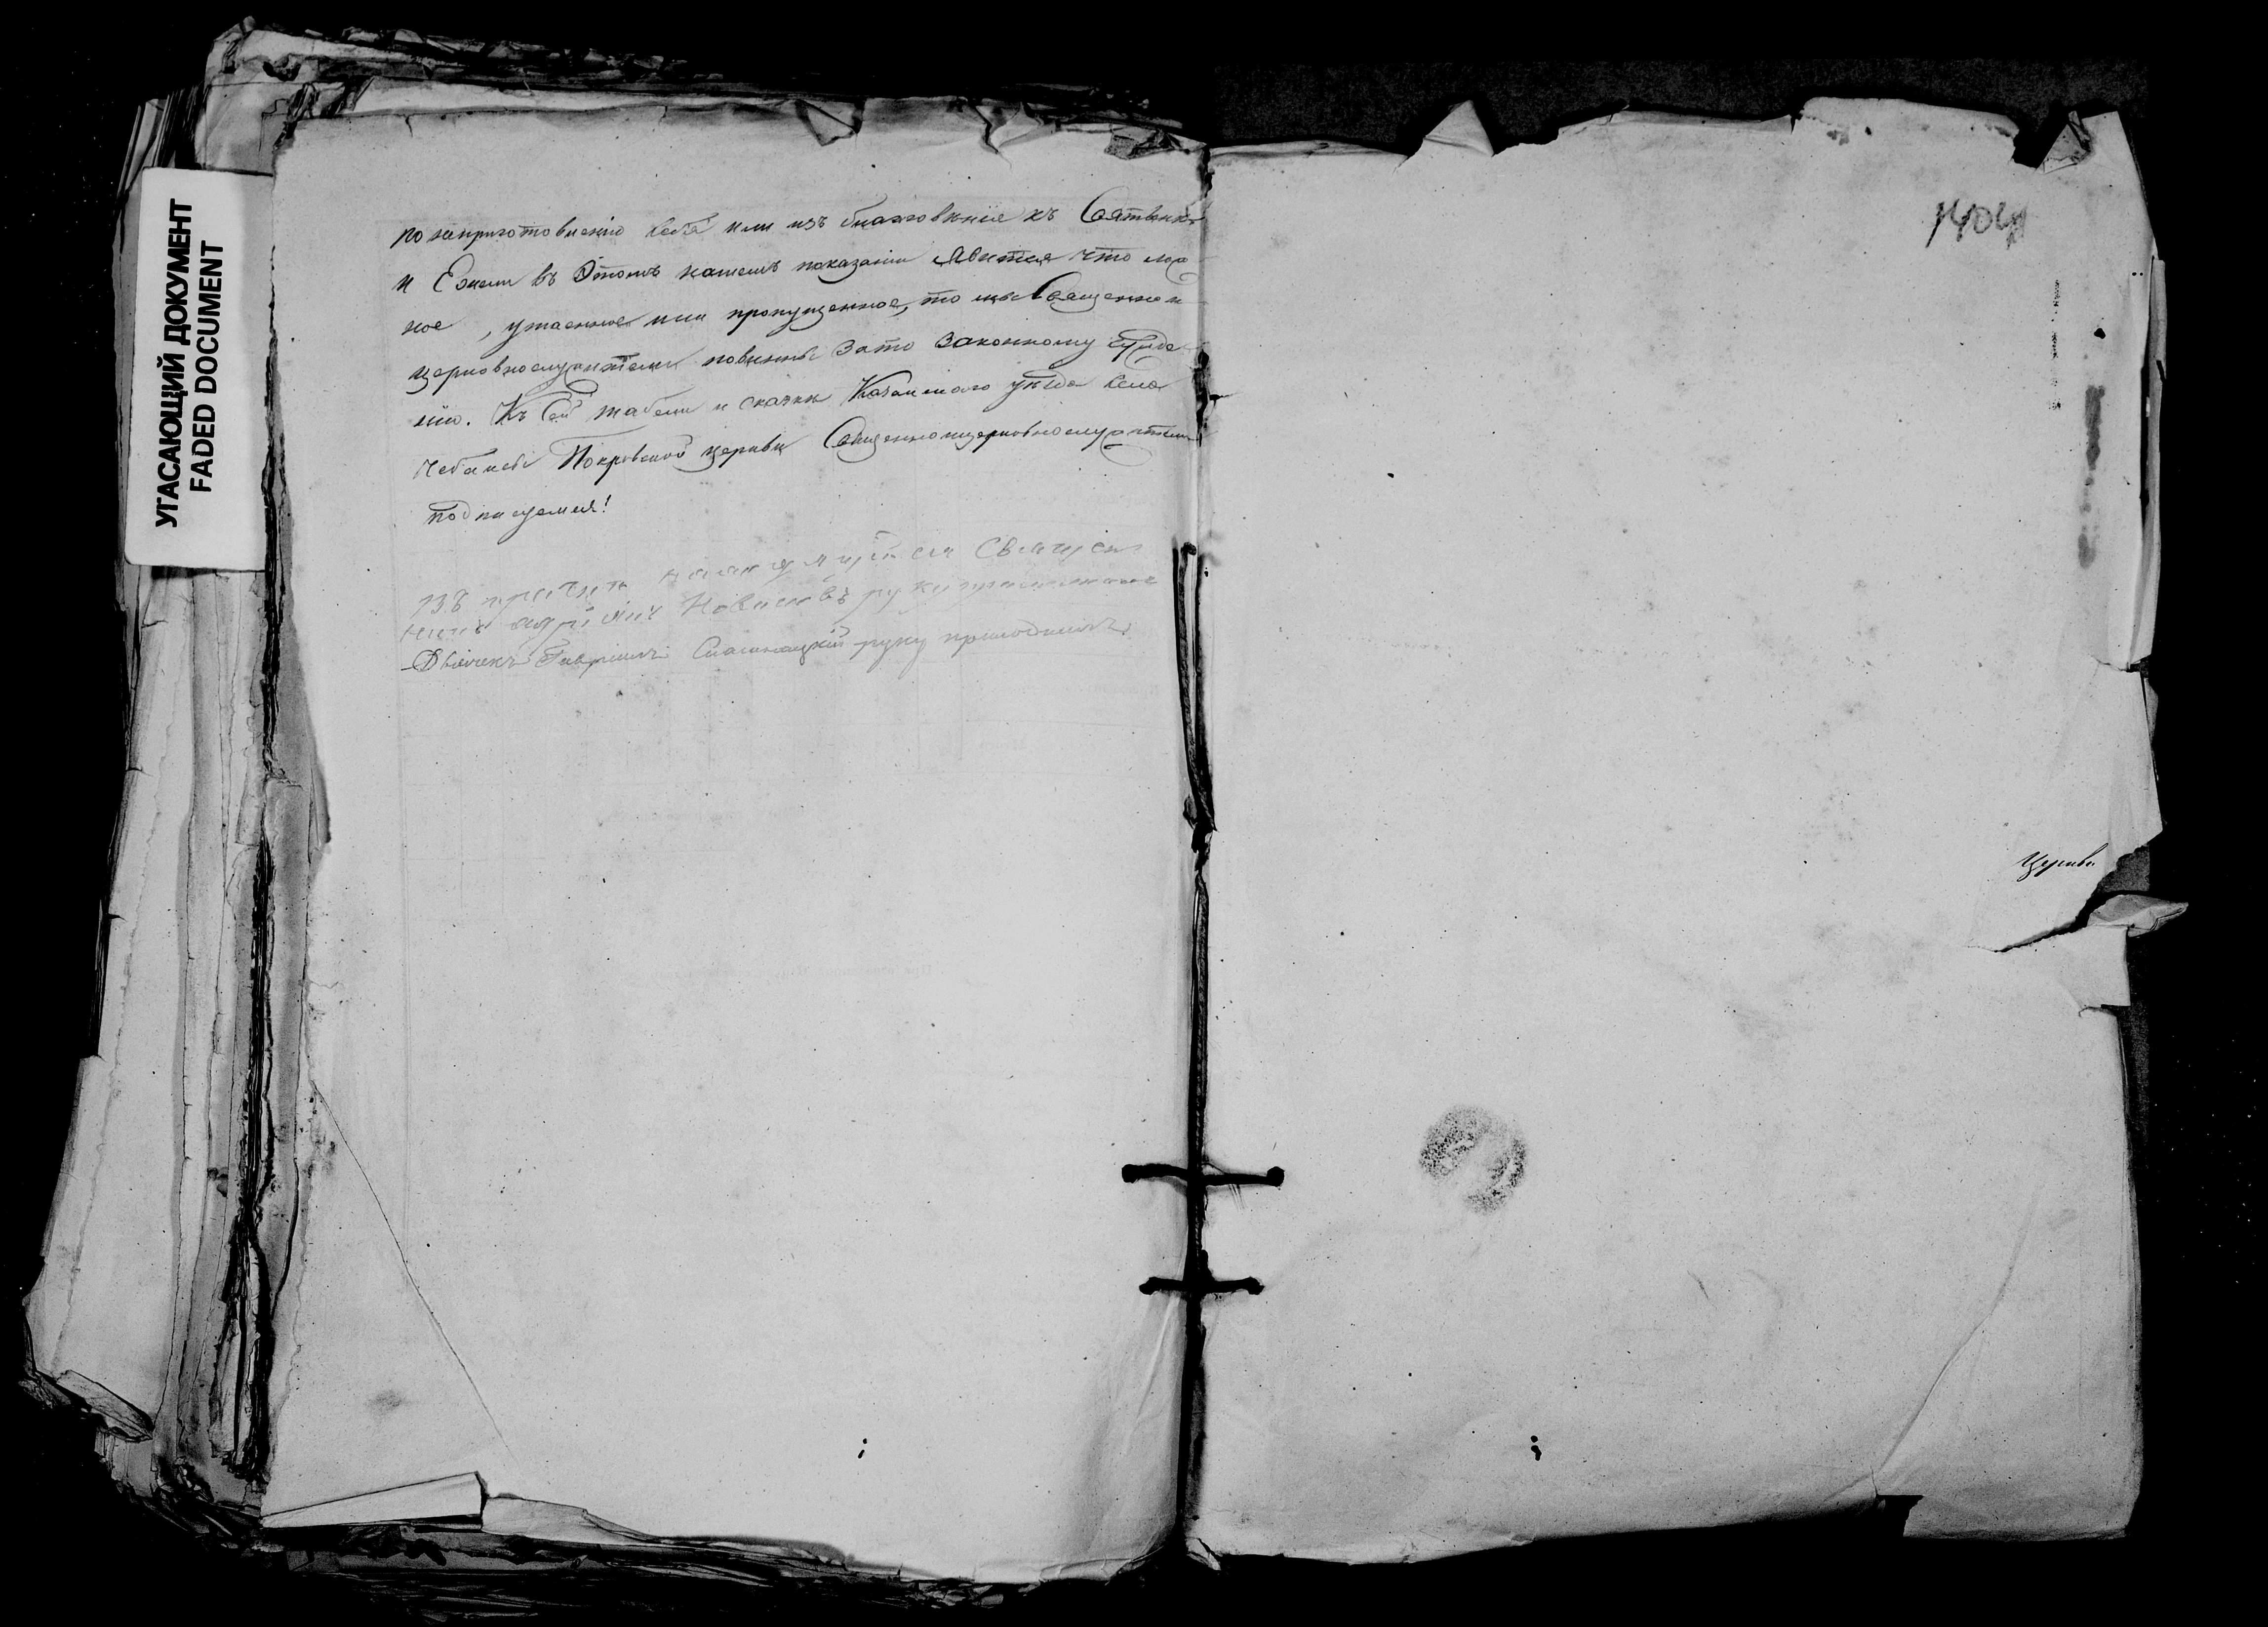 УГАСАЮЩИЙ ДОКУМЕНТ
FADED DOCUMENT
по неприготовлению себя или изъ благоговѣнія къ Святынѣ
и Ежели въ Этомъ нашемъ показаніи Явится что лож
ное, утаенное или пропущенное, то мы Священно и
церковнослужители повинны Зато Законному сужде
нію. Къ Сей табели и сказки уѣзда села
Покровской церкви Священноицерковнослужители
подписуемся!
Священ
никъ Новиковъ
Дьячекъ Гавріилъ руку приложилъ
Церкви